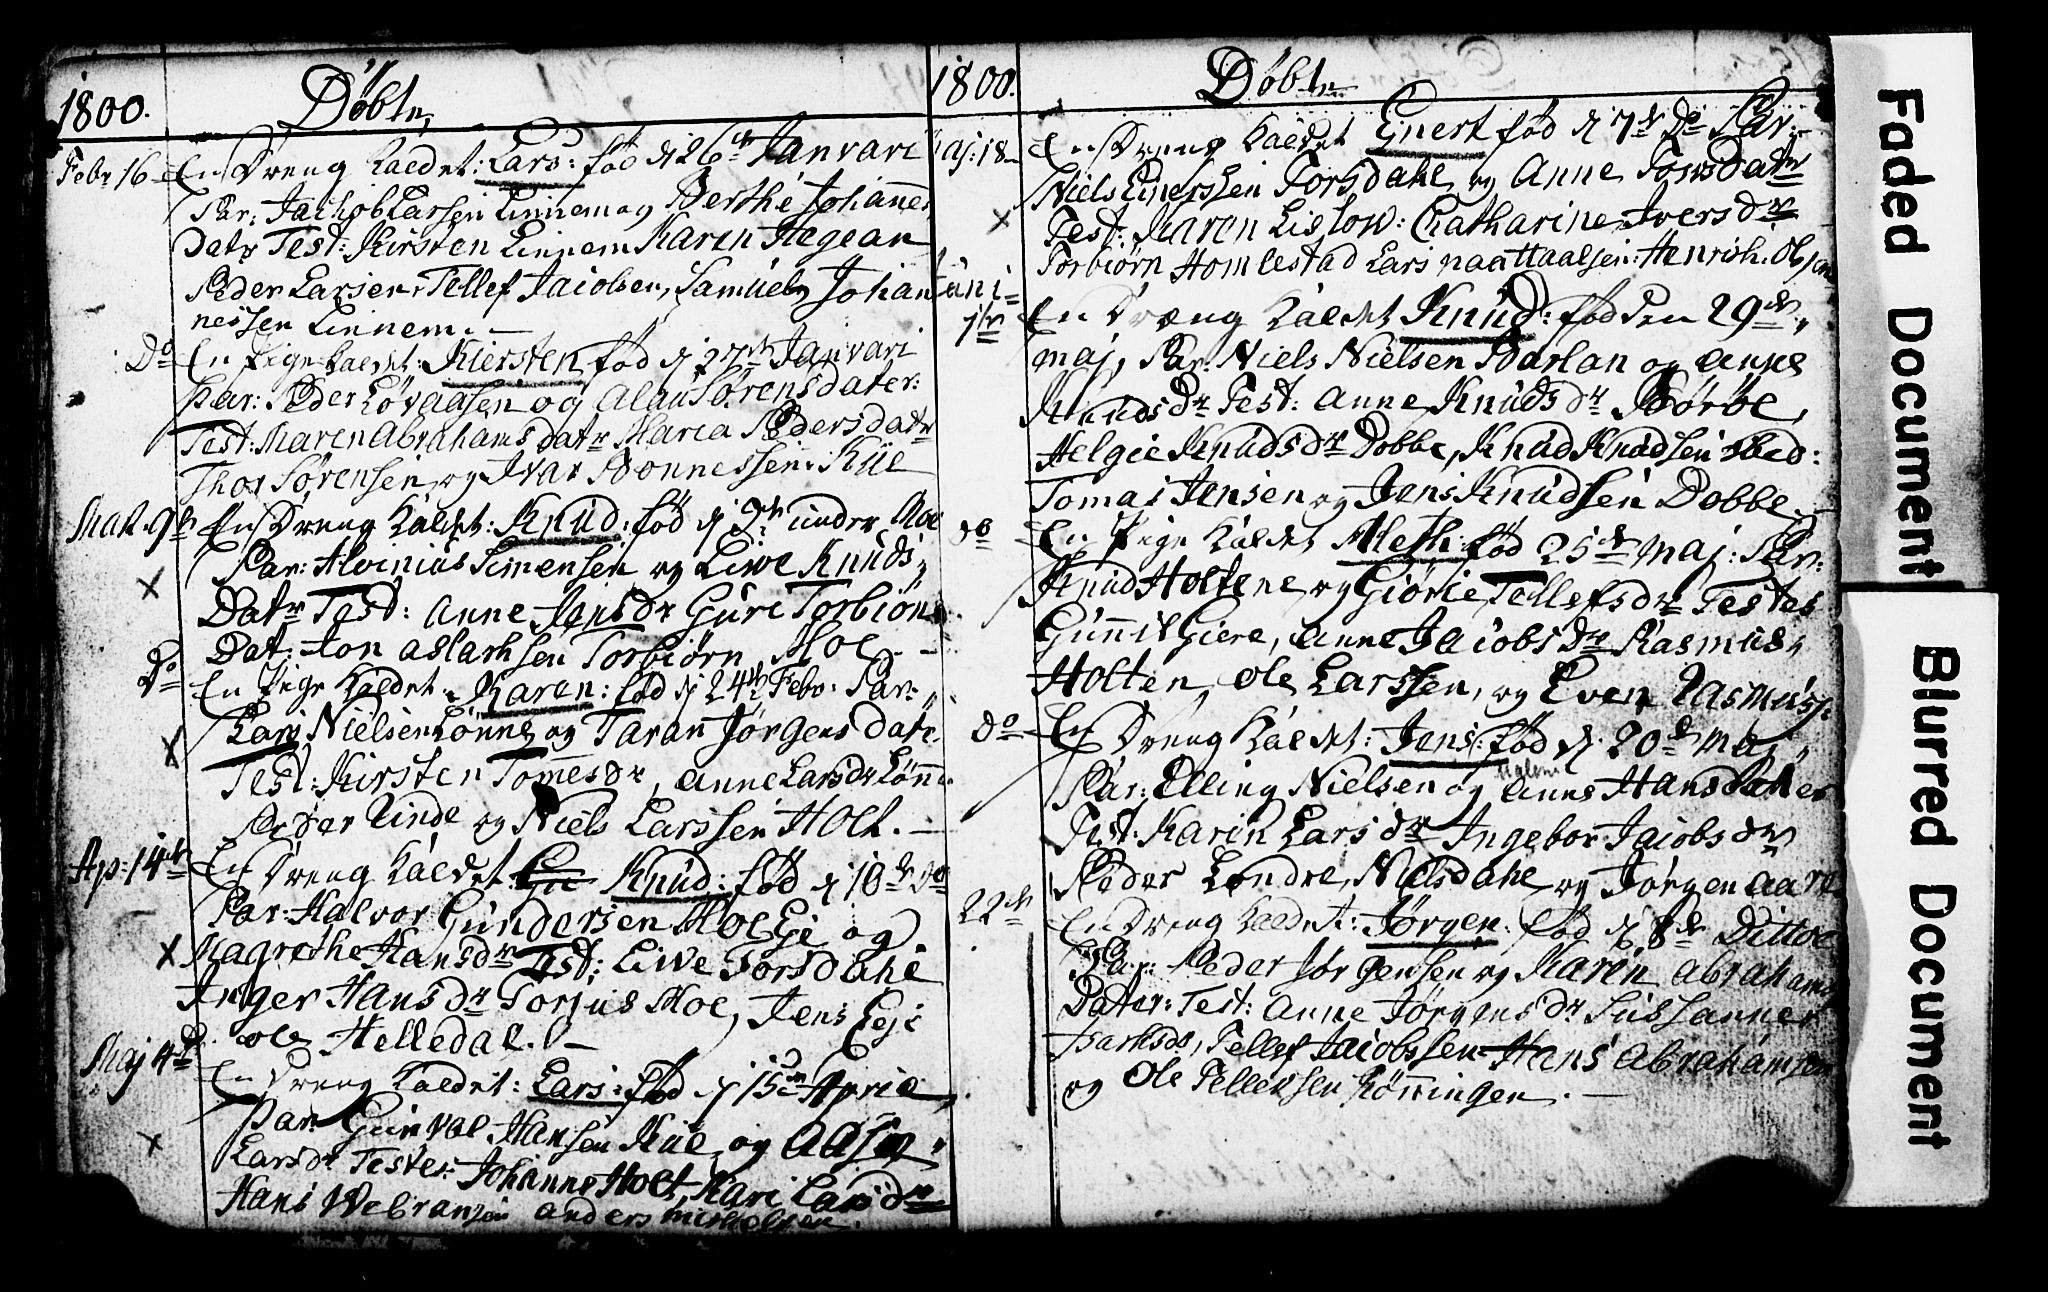 1800. Döbte,
Febr 16 En Dreng kaldet: Lars: fød d 26de Janvari
Par: Jachob Larsen Linnem og Berthe Johannes
Datr Test: Kirsten Linnem Karen Hegean
Peder Larsen, Tellef Jacobsen, Samuel og Johan
nessen Linnem. —
Do En Pige kaldet: Kiersten fød d 27de Janvari
Par: Peder Lövaasen og Alau Sørensdater:
Test: Maren Abrahamsdatr Maria Pedersdatr
Thor Sørensen og Ivar Nonnessen Kile
Mart. 9de En Dreng kaldet: Knud: fød d 2de under Moe
Par: Alvinius Simensen og Liwe Knuds
Datr Test: Anne Jensdr Guri Torbiöns
Dat: Jon Aslachsen Torbiörn Moe —
Do En Pige kaldet: Karen: fød d 24de Febr: Par:
Lars Nielsen Lönne og Taran Jørgens Datr
Test: Kirsten Tomesdr, Anne Larsdr Lönne
Peder Linde og Niels Larssen Holt. —
Ap: 14de En Dreng kaldet Knud: fød d 10de Do
Par: Halvor Gundersen Moe Eje og
Magrethe Hansdr Test: Liwe Torsdahl
Inger Hansdr Torjus Moe, Jens Eje
Ole Helledal. —
Maj 4de En Dreng kaldet: Lars: fød d 15de Aprie
Par: Gunval Hansen Kile og Aasen
Larsdr Testes: Johanne Holt, Kari Larsdr
Hans Webransen Anders Michelsen.
1800. Døbte
Maj: 18 En Dreng kaldet Enert fød d 7de Do Par:
Niels Einerssen Torsdahl og Anne Towsdatr
Test: Karen Lislow: Chatharine Iversdr
Torbiørn Homlestad Lars Henrich: Olsen
Juni 1ste En Dreng kaldet Knud: fød den 29de
Maj, Par: Niels Nielsen Barlan og Anne
Knudsdr Test: Anne Knudsdr Börbe,
Helgie Knudsdr Dobbe, Knud Knudsen ibid:
Tomas Jensen og Jens Knudsen Dobbe
do En Pige kaldet Aleth: fød 25de Maj: Par:
Knud Holtene og Giörie Tellefsdr Testes
Gunnil Giere, Anne Jacobsdr Rasmus
Holten, Ole Larssen, og Even Rasmuss:
Do En Dreng kaldet: Jens: fød d. 20de Maj
Par: Elling Nielsen og Anne Hansdater
Test: Karin Larsdr Ingebor Jacobsdr
Peder Londre, Nielsdahl og Jørgen Aare
22de En Dreng kaldet: Jørgen: fød d 8de Dittoe
Par: Peder Jørgensen og Karen Abrahams
Dater: Test: Anne Jørgensdr Sussanne
Isachsdr, Tellef Jacobssen Hans Abrahamsen
og Ole Tellefsen Rønningen. —
Faded Document
Blurred Document